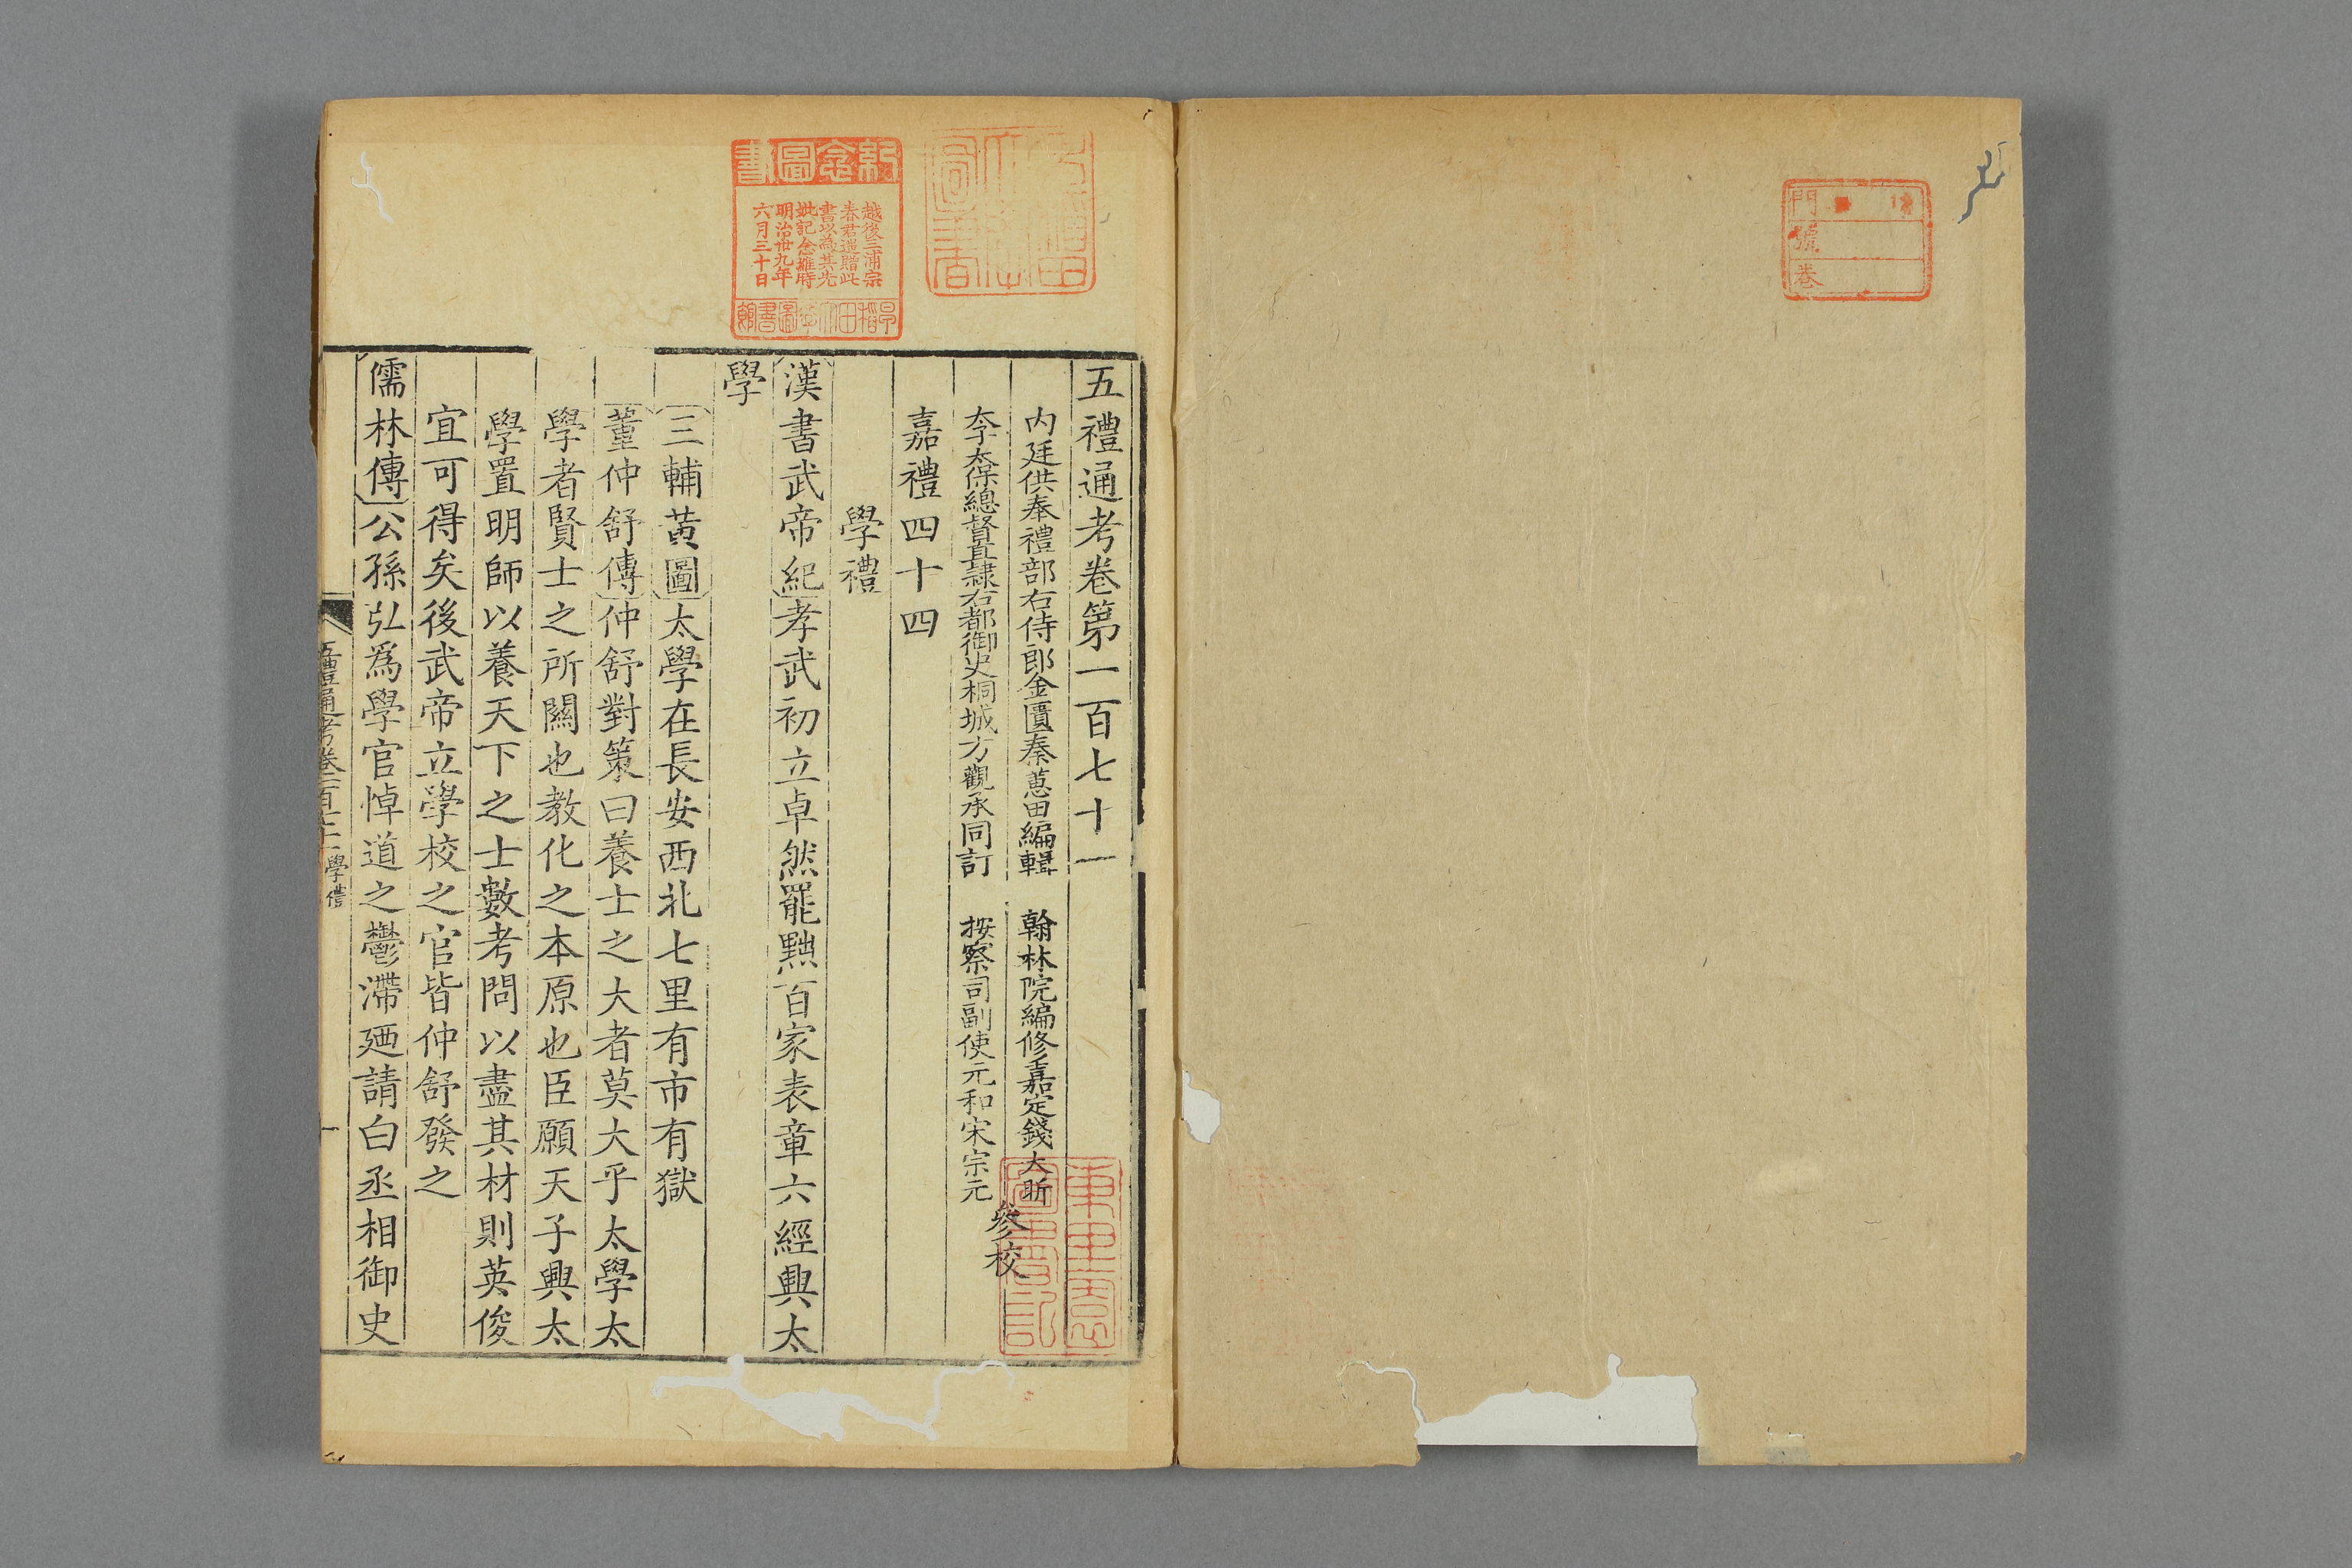 門
號
卷
紀念圖書
越後三浦宗
春君遥贈此
書以為其先
妣記念維時
明治卅九年
六月三十日
早稻田大學圖書館
五禮通考卷第一百七十一
内廷供奉禮部右侍郎金匱秦蕙田編輯 翰林院編修嘉定錢大昕
太子太保總督直隷右都御史桐城方觀承同訂 按察司副使元和宋宗元
參校
嘉禮四十四
學禮
漢書武帝紀孝武初立卓然罷黜百家表章六經興太
學
三輔黃圖太學在長安西北七里有市有獄
董仲舒傳仲舒對策曰養士之大者莫大乎太學太
學者賢士之所關也教化之本原也臣願天子興太
學置明師以養天下之士數考問以盡其材則英俊
宜可得矣後武帝立學校之官皆仲舒發之
儒林傳公孫弘爲學官悼道之鬱滯廼請白丞相御史
五禮通考卷一百七十一 學禮 一